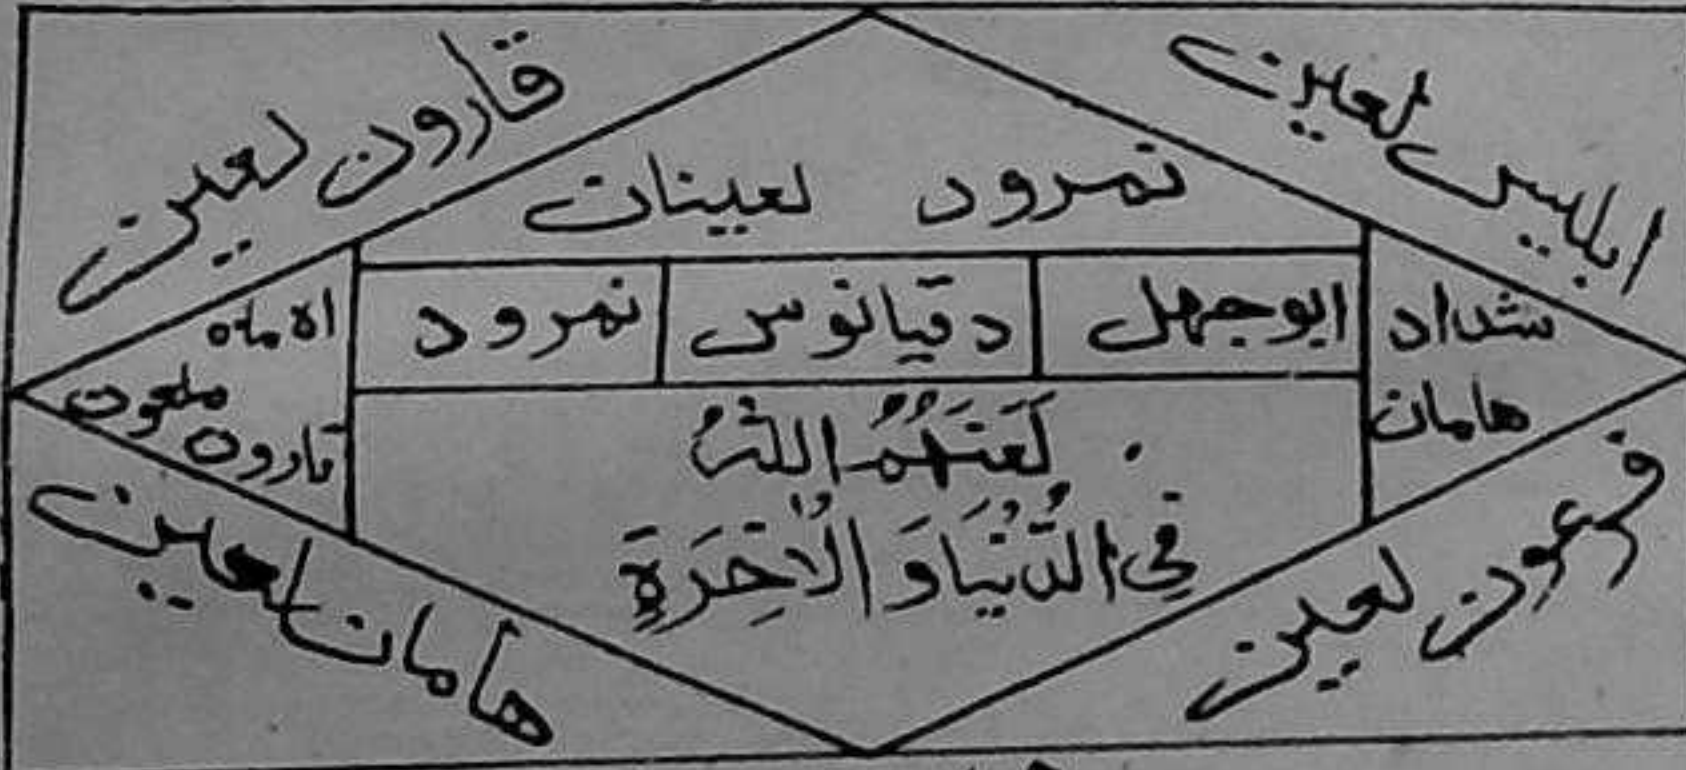 ابلیس لعین
قارون لعین
نمرود لعینات
شداد
هامان
ابوجهل
دقیانوس
نمرود
ملعون
قارون
لَعَنَهُمُ اللّٰهُ
فِی الدُّنْیَا وَ الْاٰخِرَةِ
فرعون لعین
هامان لعین